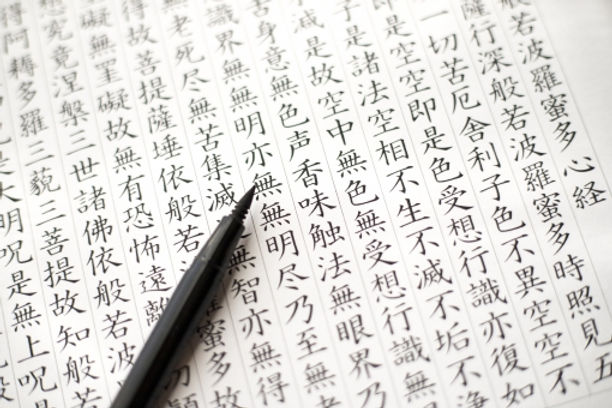 般若波羅蜜多心経
薩行深般若波羅蜜多時照見五
一切苦厄舎利子色不異空空不
是空空即是色受想行識亦復如
子是諸法空相不生不滅不垢不浄
滅是故空中無色無受想行識無
舌身意無色声香味触法無眼界乃
識界無無明亦無無明尽乃至無老
老死尽無苦集滅無智亦無得
得故菩提薩埵依般若羅蜜多故
礙無罣礙故無有恐怖遠離顛
想究竟涅槃三世諸佛依般若波
得阿耨多羅三藐三菩提故知般若
呪是大明呪是無上呪是